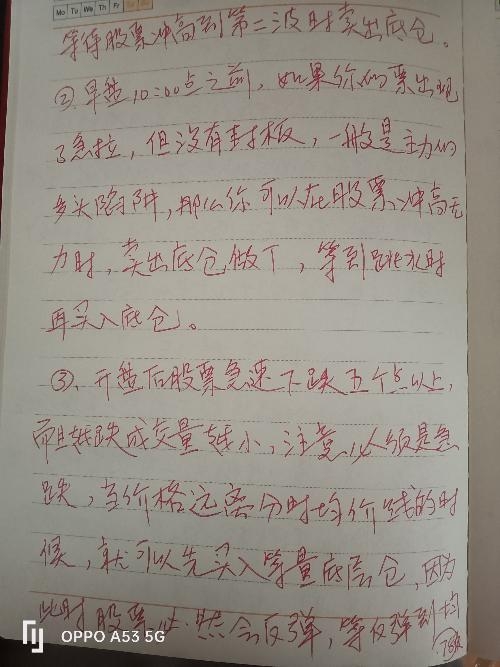 Mo Tu We Th Fr Sa Su
等待股票冲高到第二波时卖出底仓。
②早盘10:00点之前,如果你的票出现
了急拉,但没有封板,一般是主力的
多头陷阱,那么你可以在股票冲高无
力时,卖出底仓做T,等到跳水时
再买入底仓。
③、开盘后股票急速下跌五个点以上,
而且越跌成交量越小,注意必须是急
跌,当价格远离分时均价线的时
候,就可以先买入等量底层仓,因为
此时股票必然会反弹,等反弹到均
OPPO A53 5G